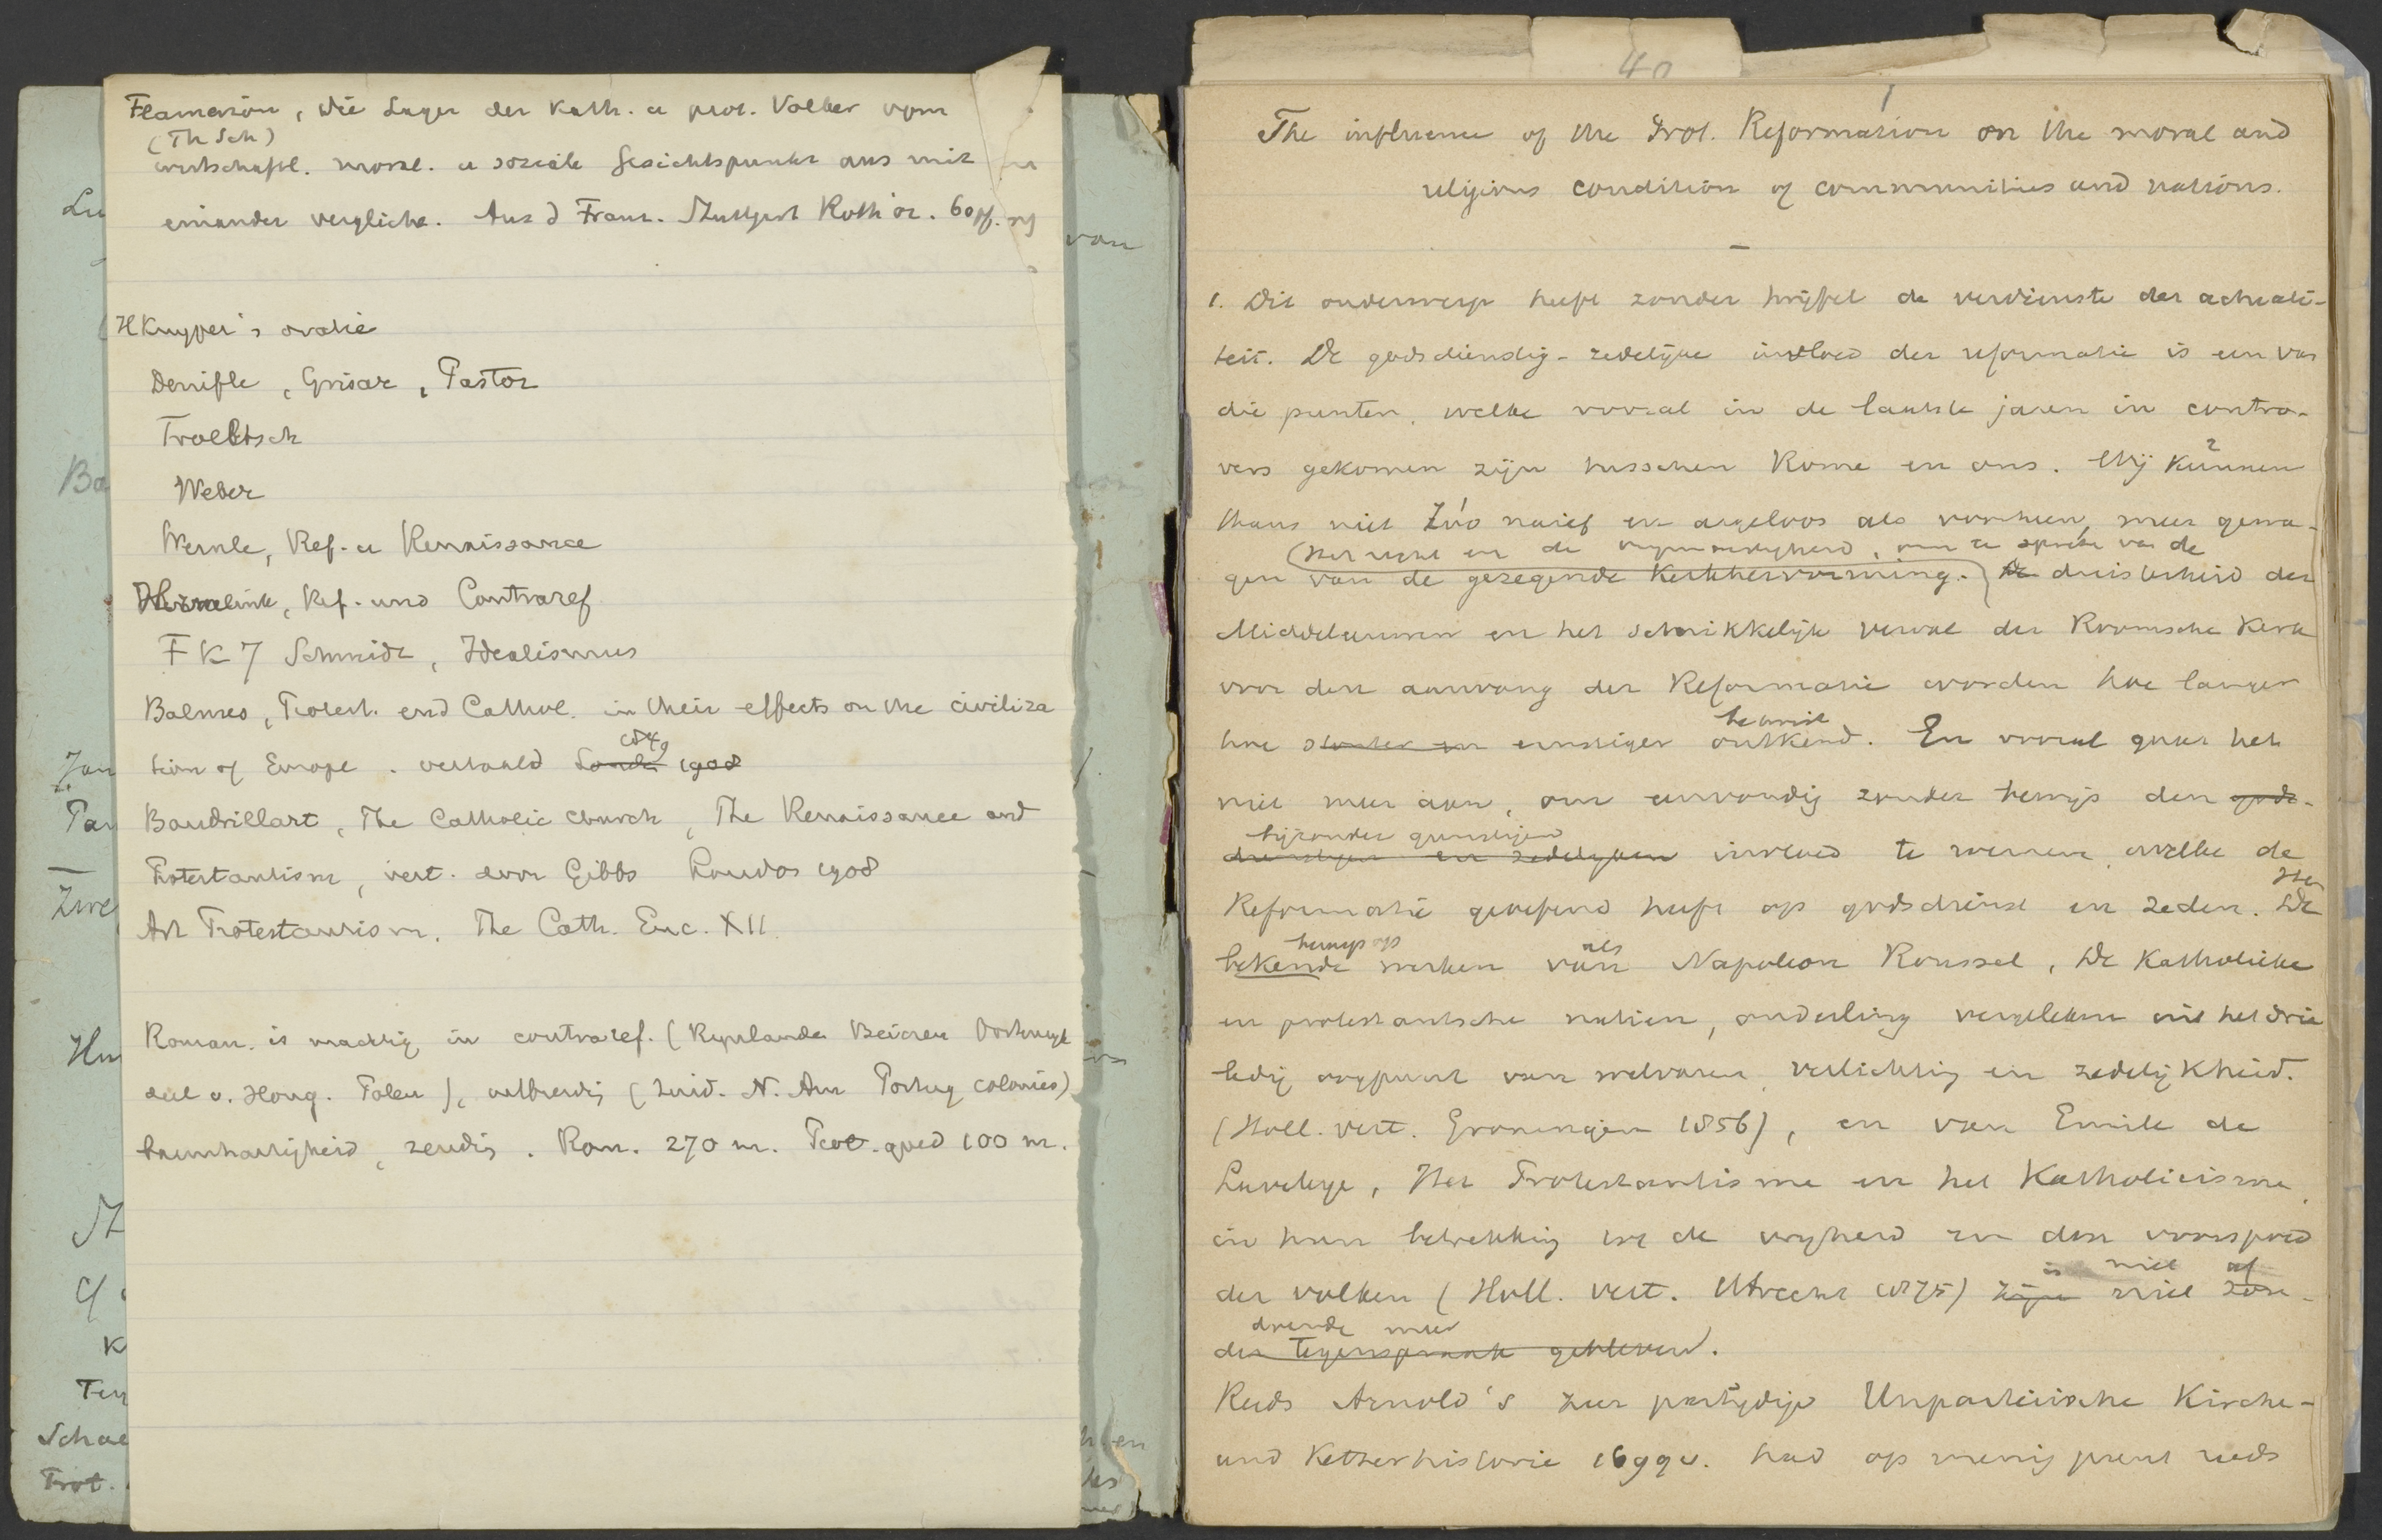 Flamerion, Die Lage der Kath. u prot. Volker vom
(Th Sch)
wirtschaftl. moral. u soziale Gesichtspunkt aus mit
einander vergliche. Aus d Franz. Stuttgart Roth or. 60 pf.
H Kuyper's oratie
Denifle, Grisar, Pastor
Troeltsch
Weber
Wernle, Ref. u Renaissance
Hermelink, Ref. und Contraref
F K 7 Schmidt, Idealismus
Balmes, Protest. and Cathol. in their effects on the civiliza
tion of Europe. vertaald 1849
Baudrillart, The Catholic church, The Renaissance and
Protestantism, vert. door Gibbs London 1908
Art Protestantism. The Cath. Enc. XII
Roman. is machtig in contraref. (Rynlanden Beieren Oostenryk
deel v. Hong. Polen), uitbreidg (Zuid. N. Am Portug colonies)
barmhartigheid, zendig. Rom. 270 m. Prot. goed 100 m.
Lu
Ba
Zwe
Schae
Prot.
van
40
1
The influence of the Prot. Reformation on the moral and
religious condition of communities and nations.
1. Dit onderwerp heeft zonder twijfel de verdienste der actuali-
teit. De godsdienstig-zedelijke invloed der reformatie is een van
die punten, welke vooral in de laatste jaren in contro-
vers gekomen zijn tusschen Rome en ons. Wij kunnen
thans niet zóó naief en argeloos als voorheen, meer gewa-
(het recht en de vrijmoedigheid, om te spreken van de
gen van de gezegende Kerkhervorming. duisterheid der
Middeleeuwen en het schrikkelijk verval der Roomsche Kerk
voor den aanvang der Reformatie worden hoe langer
betwist
hoe sterker en ernstiger ontkend. En vooral gaat het
niet meer aan, om eenvoudig zonder bewijs den gods-
bijzonder gunstigen
dienstigen en zedelijken invloed te roemen, welke de
Reformatie geoefend heeft op godsdienst en zeden. De
Het
beroep op als
bekende werken van Napoleon Roussel, De Katholieke
en protestantsche natien, onderling vergeleken uit het drie
ledig oogpunt van welvaren, verlichting en zedelijkheid.
(Holl. vert. Groningen 1856), en van Emile de
Laveleye, Het Protestantisme en het Katholicisme,
in hun betrekking tot de vryheid en den voorspoed
der volken (Holl. vert. Utrecht 1875) zijn niet zon-
is niet af
doende meer
der tegenspraak gebleven.
Reeds Arnold's zeer partijdige Unparteiische Kirche-
und Ketzerhistorie 1699 v. had op menig punt reeds